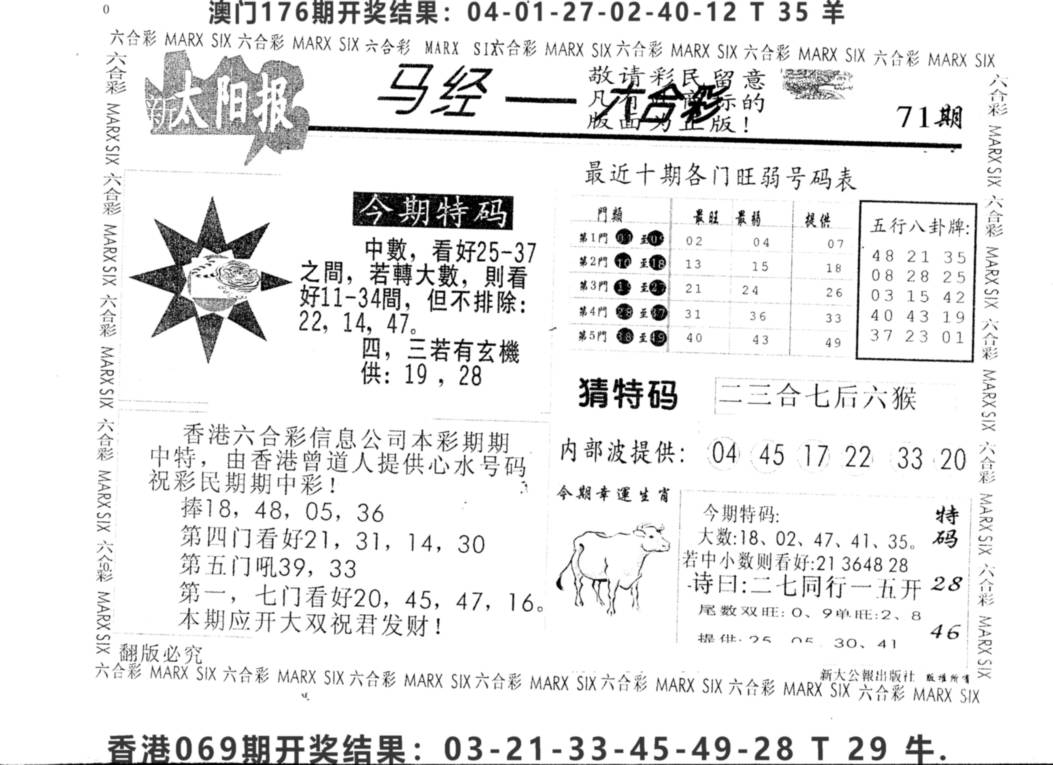 澳门176期开奖结果：04-01-27-02-40-12 T 35 羊
六合彩 MARX SIX 六合彩 MARX SIX 六合彩 MARX SIX 六合彩 MARX SIX 六合彩 MARX SIX 六合彩 MARX SIX 六合彩 MARX SIX
新太阳报
马经—六合彩
敬请彩民留意
版面为正版！
71期
今期特码
中數，看好25-37
之間，若轉大數，則看
好11-34間，但不排除：
22，14，47。
四，三若有玄機
供：19，28
最近十期各门旺弱号码表
門類 最旺 最弱 提供
第1門 01 至09 02 04 07
第2門 10 至18 13 15 18
第3門 19 至27 21 24 26
第4門 28 至37 31 36 33
第5門 38 至49 40 43 49
五行八卦牌：
48 21 35
08 28 25
03 15 42
40 43 19
37 23 01
猜特码
二三合七后六猴
内部波提供：04 45 17 22 33 20
香港六合彩信息公司本彩期期
中特，由香港曾道人提供心水号码
祝彩民期期中彩！
捧18，48，05，36
第四门看好21，31，14，30
第五门吼39，33
第一，七门看好20，45，47，16。
本期应开大双祝君发财！
今期幸運生肖
今期特码：
大数:18、02、47、41、35。
若中小数则看好:21 36 48 28
诗曰:二七同行一五开
尾数双旺:0、9单旺:2、8
提供:25 05 30、41
特码
28
46
翻版必究
新大公報出版社 版權所有
六合彩 MARX SIX 六合彩 MARX SIX 六合彩 MARX SIX 六合彩 MARX SIX 六合彩 MARX SIX 六合彩 MARX SIX 六合彩 MARX SIX
香港069期开奖结果：03-21-33-45-49-28 T 29 牛.